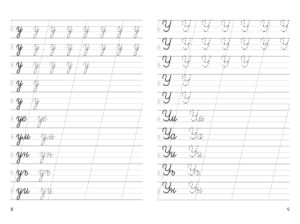 у у у у у у у у
у у у у у у у у
у у у у у
у у
у у
уе уе
ум ум
ун ун
уъ уъ
уи уи
8
У У У У У У У
У У У У У У У
У У У У У
У У
У У
Уш Уш
Уа Уа
Уи Уи
Уь Уь
Ун Ун
9